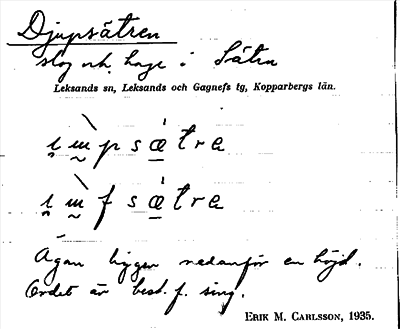 Djupsätren
skog och hage i Sätra
Leksands sn, Leksands och Gagnefs tg, Kopparbergs län.
ɯ̀ p s á t r a
ɯ̀ f s á t r a
Ägan ligger nedanför en höjd.
Ordet är best. f. sing.
ERIK M. CARLSSON, 1935.